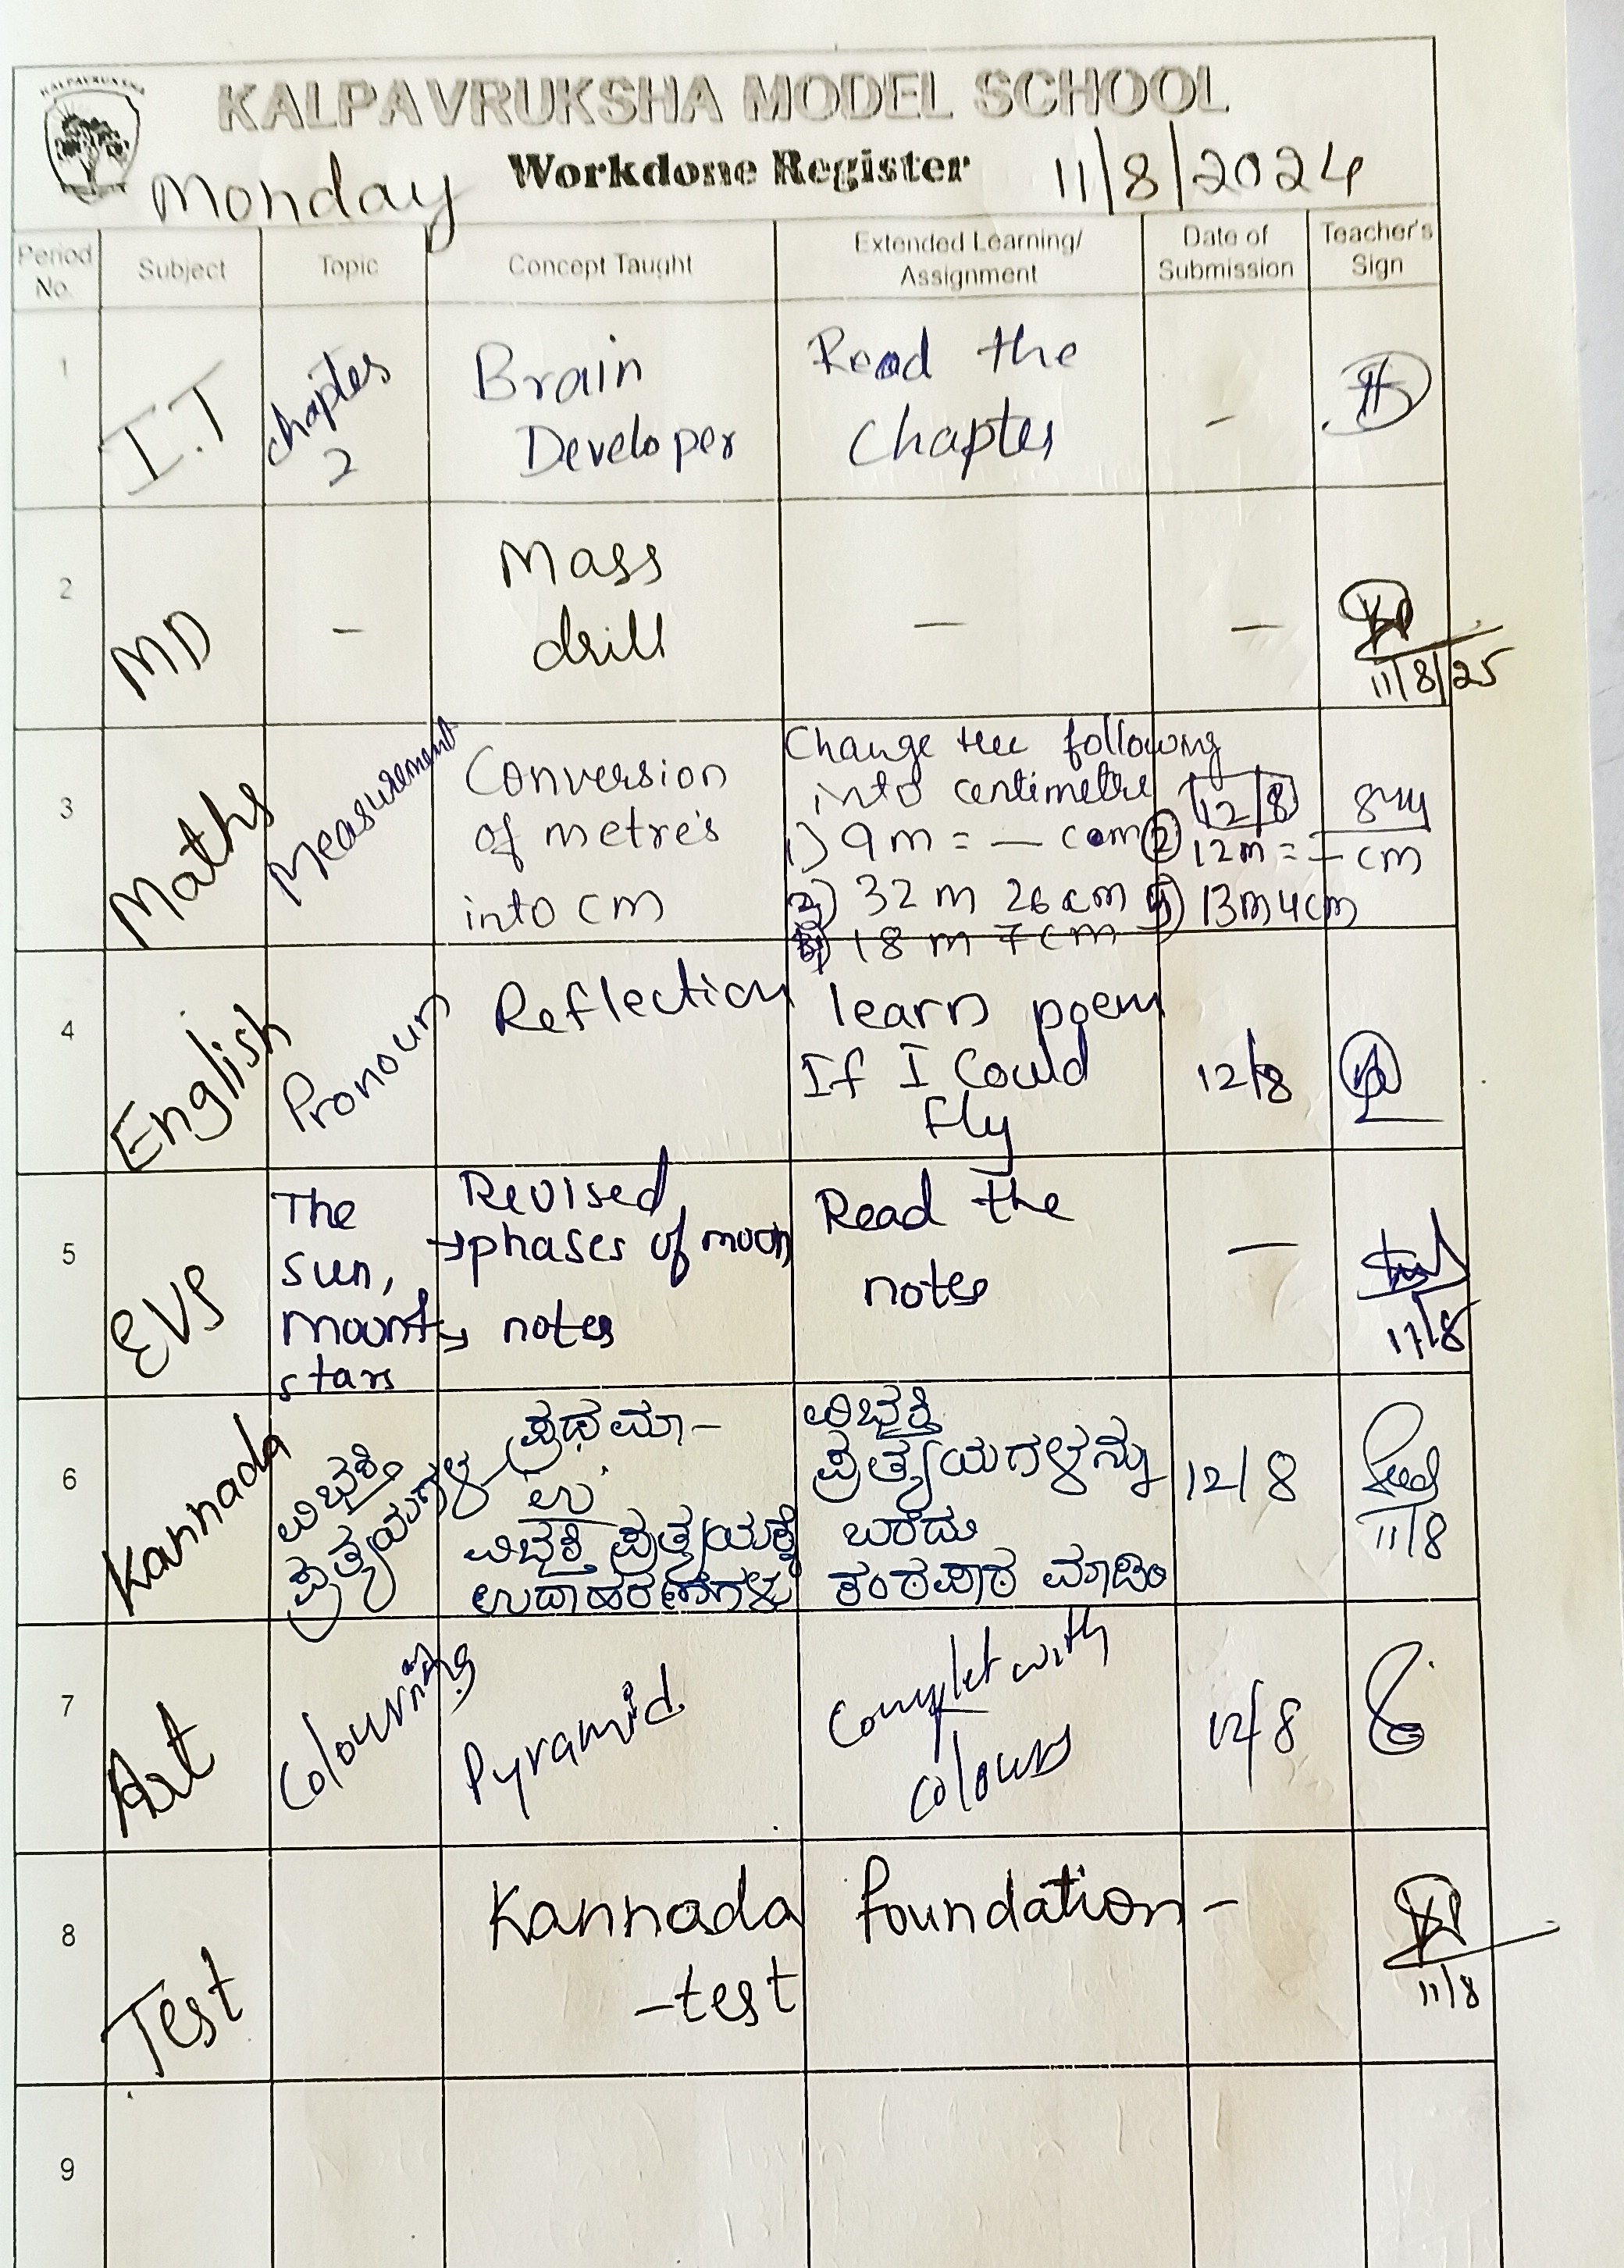 KALPAVRUKSHA
KALPAVRUKSHA MODEL SCHOOL
Workdone Register
Monday
11/8/2024
Period No.
Subject
Topic
Concept Taught
Extended Learning/
Assignment
Date of
Submission
Teacher's
Sign
1
I.T
chapter
2
Brain
Developer
Read the
Chapter
-
2
MD
-
Mass
drill
-
-
11/8/25
3
Maths
Measurement
Conversion
of metre's
into cm
Change the following
into centimetre
12/8
1) 9m = — cm ② 12m = — cm
3) 32 m 26 cm 4) 13m 4cm
5) 18 m 7cm
4
English
Pronoun
Reflection
learn poem
If I Could
fly
12/8
5
EVS
The
sun,
moon &
stars
Revised
→ phases of moon
→ notes
Read the
notes
—
11/8
6
Kannada
ವಿಭಕ್ತಿ
ಪ್ರತ್ಯಯಗಳು
ಪ್ರಥಮಾ -
'ಉ'
ವಿಭಕ್ತಿ ಪ್ರತ್ಯಯಕ್ಕೆ
ಉದಾಹರಣೆಗಳು
ವಿಭಕ್ತಿ
ಪ್ರತ್ಯಯಗಳನ್ನು
ಬರೆದು
ಕಂಠಪಾಠ ಮಾಡಿ
12/8
11/8
7
Art
Colouring
Pyramid
Complet with
colours
12/8
8
Test
Kannada foundation
-test
-
11/8
9